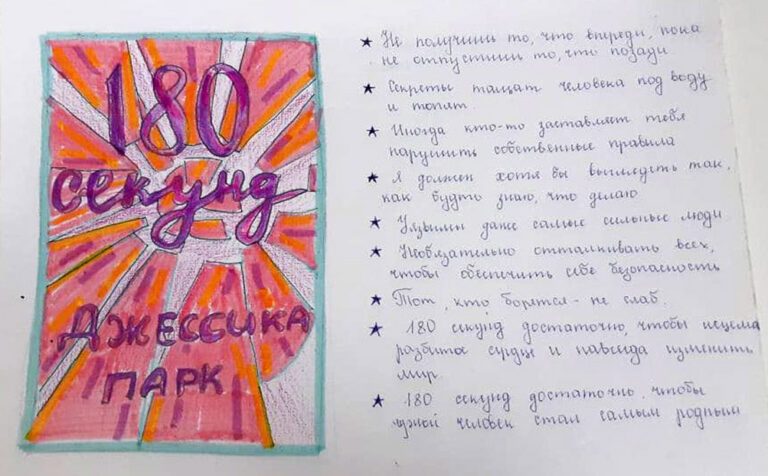 180
секунд
ДЖЕССИКА
ПАРК
★ Не получишь то, что впереди, пока
не отпустишь то, что позади.
★ Секреты тащат человека под воду
и топят.
★ Иногда кто-то заставляет тебя
нарушить собственные правила
★ Я должен хотя бы выглядеть так,
как будто знаю, что делаю
★ Уязвимы даже самые сильные люди
★ Необязательно отталкивать всех,
чтобы обеспечить себе безопасность
★ Тот, кто борется - не слаб.
★ 180 секунд достаточно, чтобы исцели
разбитое сердце и навсегда изменить
мир.
★ 180 секунд достаточно, чтобы
чужой человек стал самым родным